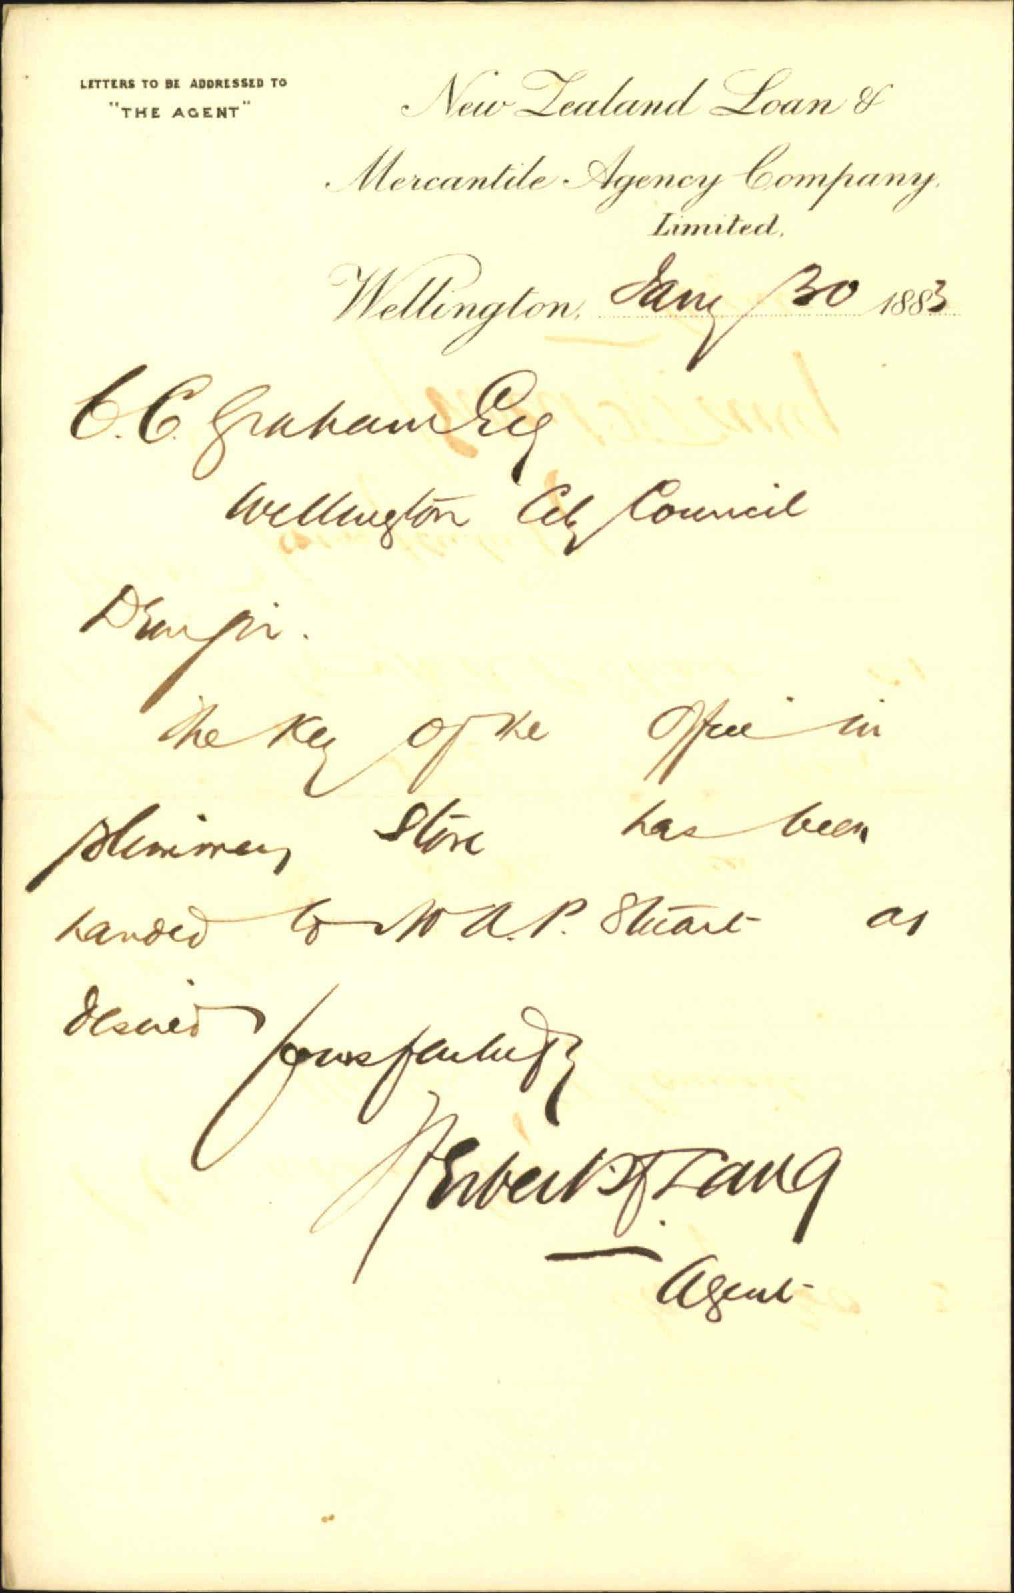 LETTERS TO BE ADDRESSED TO
"THE AGENT"
New Zealand Loan &
Mercantile Agency Company.
Limited.
Wellington, Jany 30 1883
C. C. Graham Esq
Wellington City Council
Dear Sir.
The Key of the Office in
Plimmers Store has been
handed to Mr A. P. Stuart as
desired
Yours faithfully
Herbert
Agent